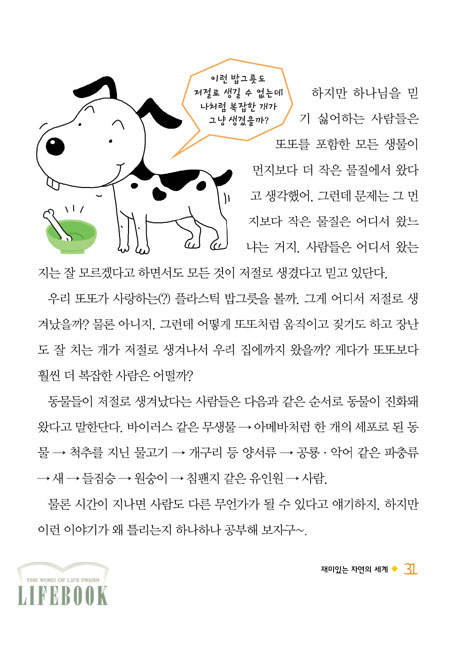 이런 밥그릇도
저절로 생길 수 없는데
나처럼 복잡한 개가
그냥 생겼을까?
하지만 하나님을 믿
기 싫어하는 사람들은
또또를 포함한 모든 생물이
먼지보다 더 작은 물질에서 왔다
고 생각했어. 그런데 문제는 그 먼
지보다 작은 물질은 어디서 왔느
냐는 거지. 사람들은 어디서 왔는
지는 잘 모르겠다고 하면서도 모든 것이 저절로 생겼다고 믿고 있단다.
우리 또또가 사랑하는(?) 플라스틱 밥그릇을 볼까. 그게 어디서 저절로 생
겨났을까? 물론 아니지. 그런데 어떻게 또또처럼 움직이고 짖기도 하고 장난
도 잘 치는 개가 저절로 생겨나서 우리 집에까지 왔을까? 게다가 또또보다
훨씬 더 복잡한 사람은 어떨까?
동물들이 저절로 생겨났다는 사람들은 다음과 같은 순서로 동물이 진화돼
왔다고 말한단다. 바이러스 같은 무생물 → 아메바처럼 한 개의 세포로 된 동
물 → 척추를 지닌 물고기 → 개구리 등 양서류 → 공룡 · 악어 같은 파충류
→ 새 → 들짐승 → 원숭이 → 침팬지 같은 유인원 → 사람.
물론 시간이 지나면 사람도 다른 무언가가 될 수 있다고 얘기하지. 하지만
이런 이야기가 왜 틀리는지 하나하나 공부해 보자구~.
재미있는 자연의 세계 ◆ 31
THE WORD OF LIFE PRESS
LIFEBOOK